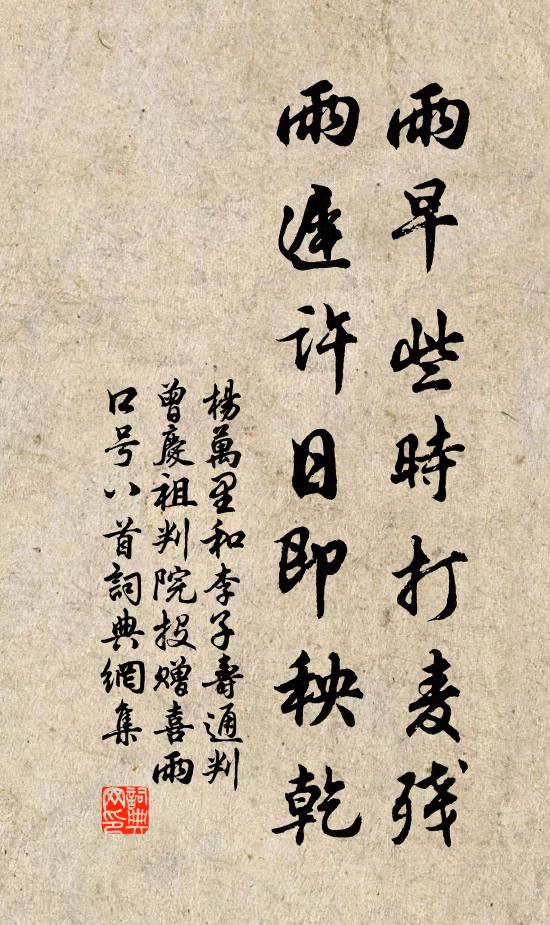 雨早些時打麦殘
雨遲許日即秧乾
楊萬里和李子壽通判
曾慶祖判院投贈喜雨
口号八首詞典網集
詞典网印